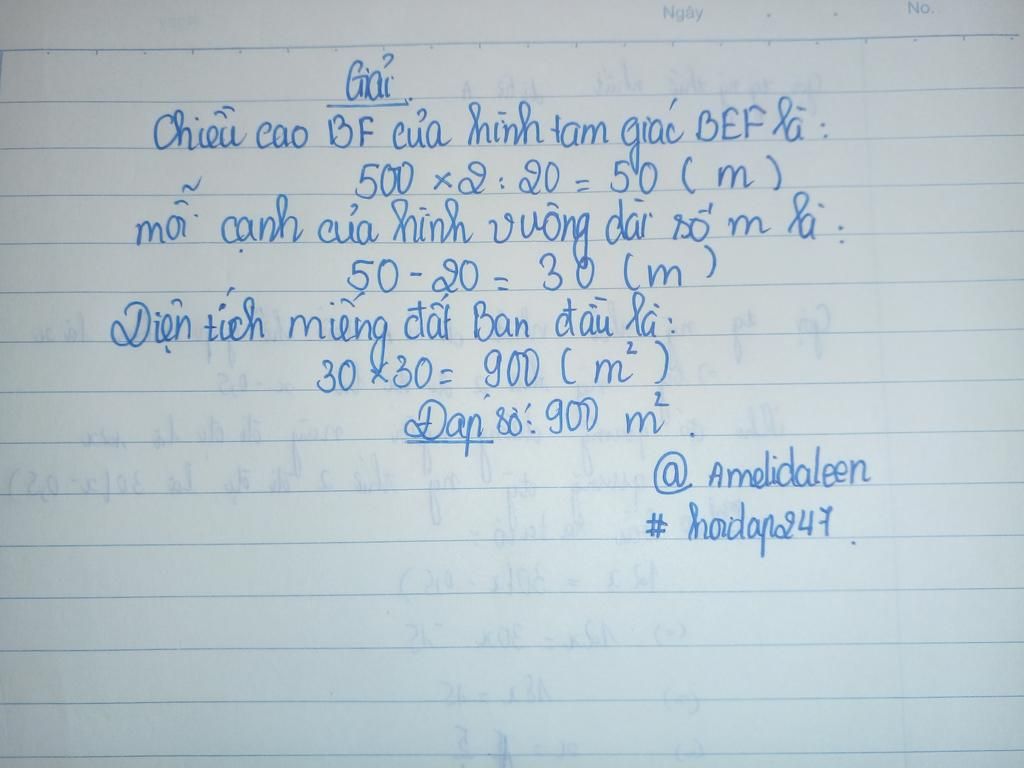 Ngày
No.
Giải.
Chiều cao BF của hình tam giác BEF là:
500 × 2 : 20 = 50 (m)
mỗi cạnh của hình vuông dài số m là:
50 - 20 = 30 (m)
Diện tích miếng đất Ban đầu là:
30 × 30 = 900 (m²)
Đáp số: 900 m².
@ Amelidaleen
# hoidap247.